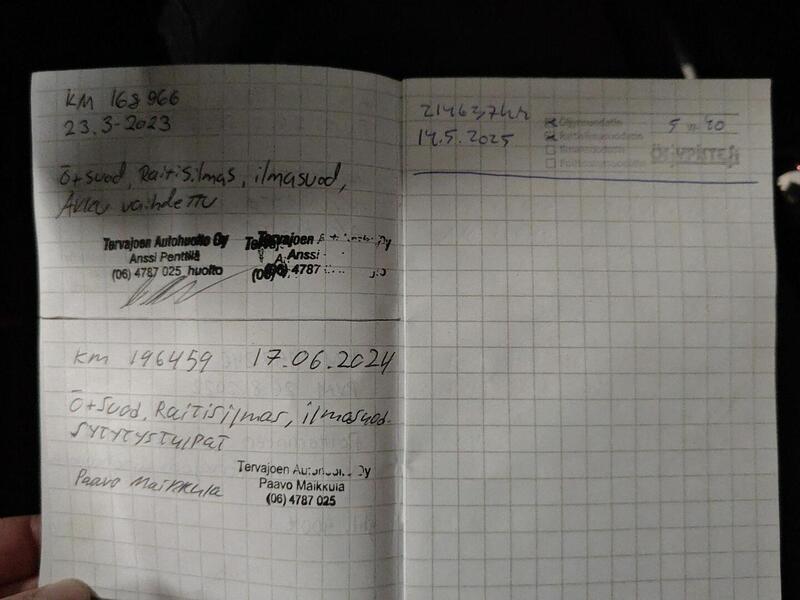 KM 168966
23.3-2023
Ö+suod, Raitisilmas, ilmasuod,
Akku vaihdettu
Tervajoen Autohuolto Oy
Anssi Penttilä
(06) 4787 025 huolto
Tervajoen
Anssi
(06) 4787
KM 196459 17.06.2024
Ö+suod, Raitisilmas, ilmasuod.
SYTYTYSTULPAT
Paavo Maikkula
Tervajoen Oy
Paavo Maikkula
(06) 4787 025
214637km
14.5.2025
5 w 40